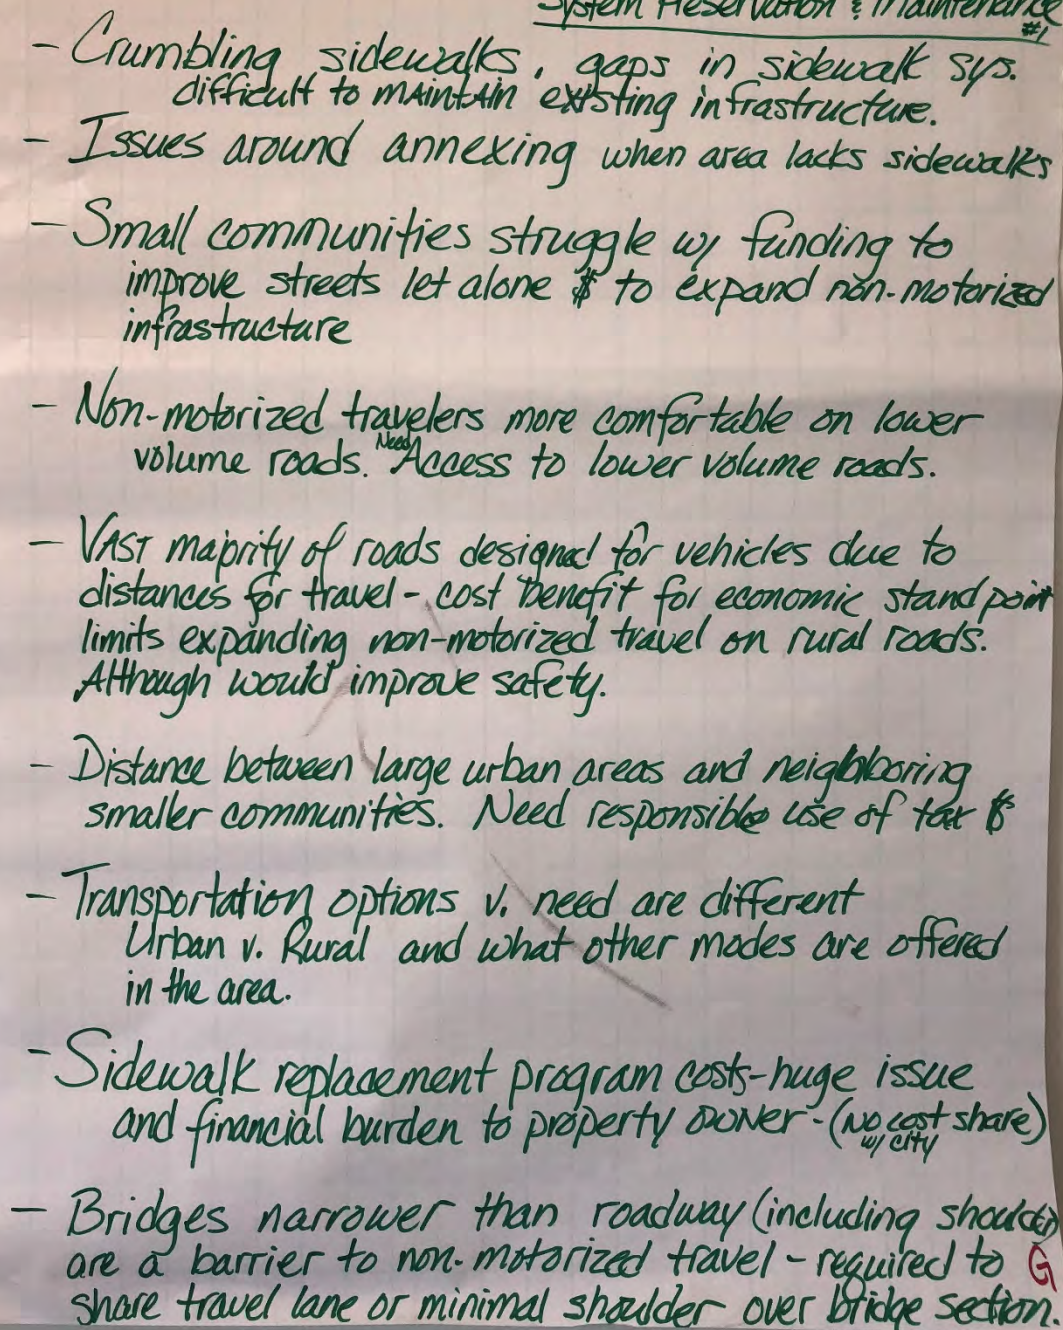 System Preservation & Maintenance
#1
- Crumbling sidewalks, gaps in sidewalk sys.
difficult to maintain existing infrastructure.
- Issues around annexing when area lacks sidewalks
- Small communities struggle w/ funding to
improve streets let alone $ to expand non-motorized
infrastructure
- Non-motorized travelers more comfortable on lower
volume roads. Need Access to lower volume roads.
- Vast majority of roads designed for vehicles due to
distances for travel - cost benefit for economic stand point
limits expanding non-motorized travel on rural roads.
Although would improve safety.
- Distance between large urban areas and neighboring
smaller communities. Need responsible use of tax $s
- Transportation options v. need are different
Urban v. Rural and what other modes are offered
in the area.
- Sidewalk replacement program costs-huge issue
and financial burden to property owner - (No cost share)
w/ city
- Bridges narrower than roadway (including shoulder)
are a barrier to non-motorized travel - required to G
share travel lane or minimal shoulder over bridge section.